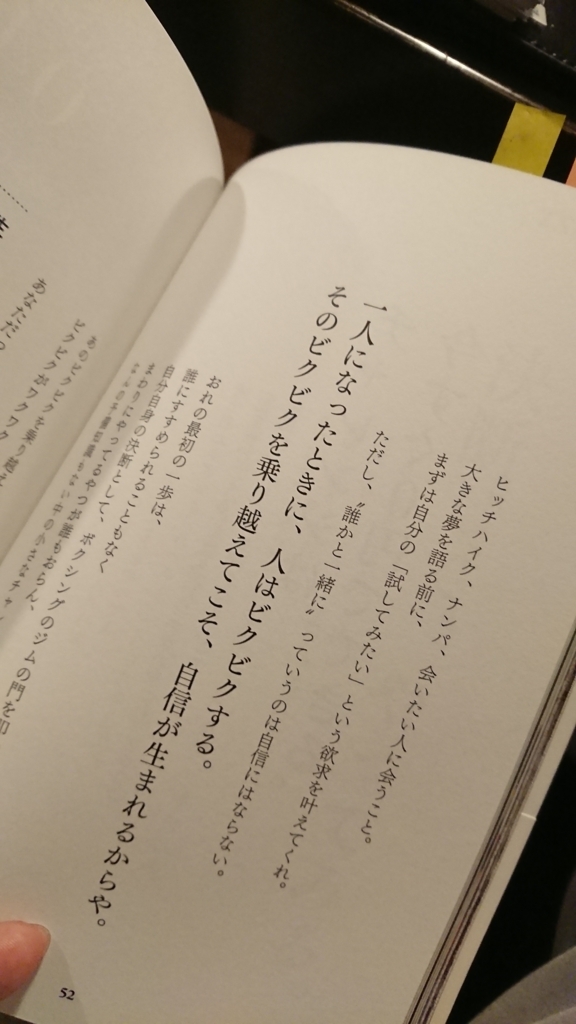 ヒッチハイク、ナンパ、会いたい人に会うこと。
大きな夢を語る前に、
まずは自分の「試してみたい」という欲求を叶えてくれ。
ただし、〝誰かと一緒に〟っていうのは自信にはならない。
一人になったときに、人はビクビクする。
そのビクビクを乗り越えてこそ、自信が生まれるからや。
おれの最初の一歩は、
誰にすすめられることもなく
自分自身の決断として、ボクシングのジムの門を叩
まわりにやってるやつが誰もおらん、
52
あのビクビクを乗り越え
ビクビクがワクワク
あなただっ